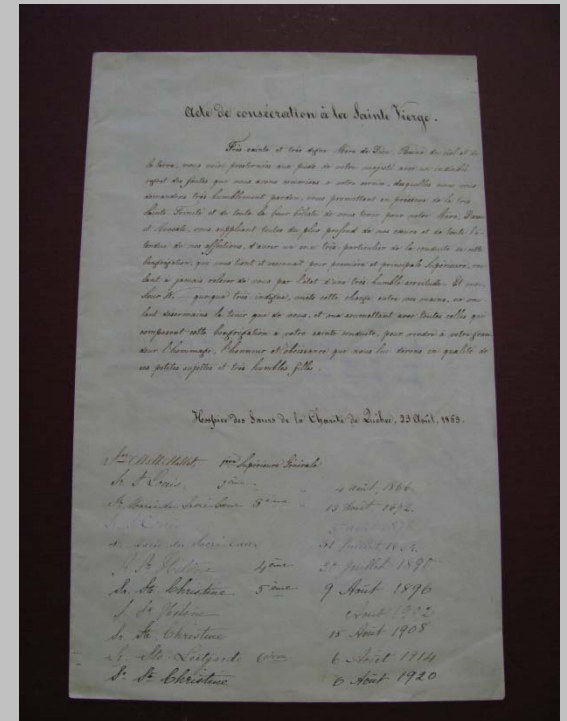 Acte de consécration à la Sainte Vierge.
Très sainte et très digne Mère de Dieu, Reine du ciel et de
la terre, nous voici prosternées aux pieds de votre majesté avec un indicible
regret des fautes que nous avons commises à votre service, desquelles nous vous
demandons très humblement pardon, vous promettant en présence de la très
Sainte Trinité et de toute la Cour Céleste de vous tenir pour notre Mère, Dame
et Avocate, vous suppliant toutes du plus profond de nos cœurs et de toute l'é-
tendue de nos affections, d'avoir un soin très particulier de la conduite de cette
Congrégation, qui vous tient et reconnait pour première et principale Supérieure, vou-
lant à jamais relever de vous par l'état d'une très humble servitude. Et moi,
Sœur N. quoique très indigne, mets cette charge entre vos mains, ne vou-
lant désormais la tenir que de vous, et me soumettant avec toutes celles qui
composent cette Congrégation à votre sainte conduite, pour rendre à votre gran-
deur l'hommage, l'honneur et l'obéissance que nous lui devons en qualité de
vos petites sujettes et très humbles filles.
Hospice des Sœurs de la Charité de Québec, 23 Août, 1863.
Sr M. Mallet, 1ère Supérieure Générale
Sr St Louis 2ème " 4 août, 1866
Sr Marie du Sacré Cœur 3ème " 13 Août 1872.
Sr St Louis
Sr Marie du Sacré Cœur 31 Juillet
Sr St Hélène 4ème Juillet 1890
Sr. Ste Christine 5ème 9 Août 1896
S. Hélène Août 1902
Sr. Ste Christine 15 Août 1908
Sr. Ste Lutgarde 6ème 6 Août 1914
Sr Ste Christine 8 Août 1920